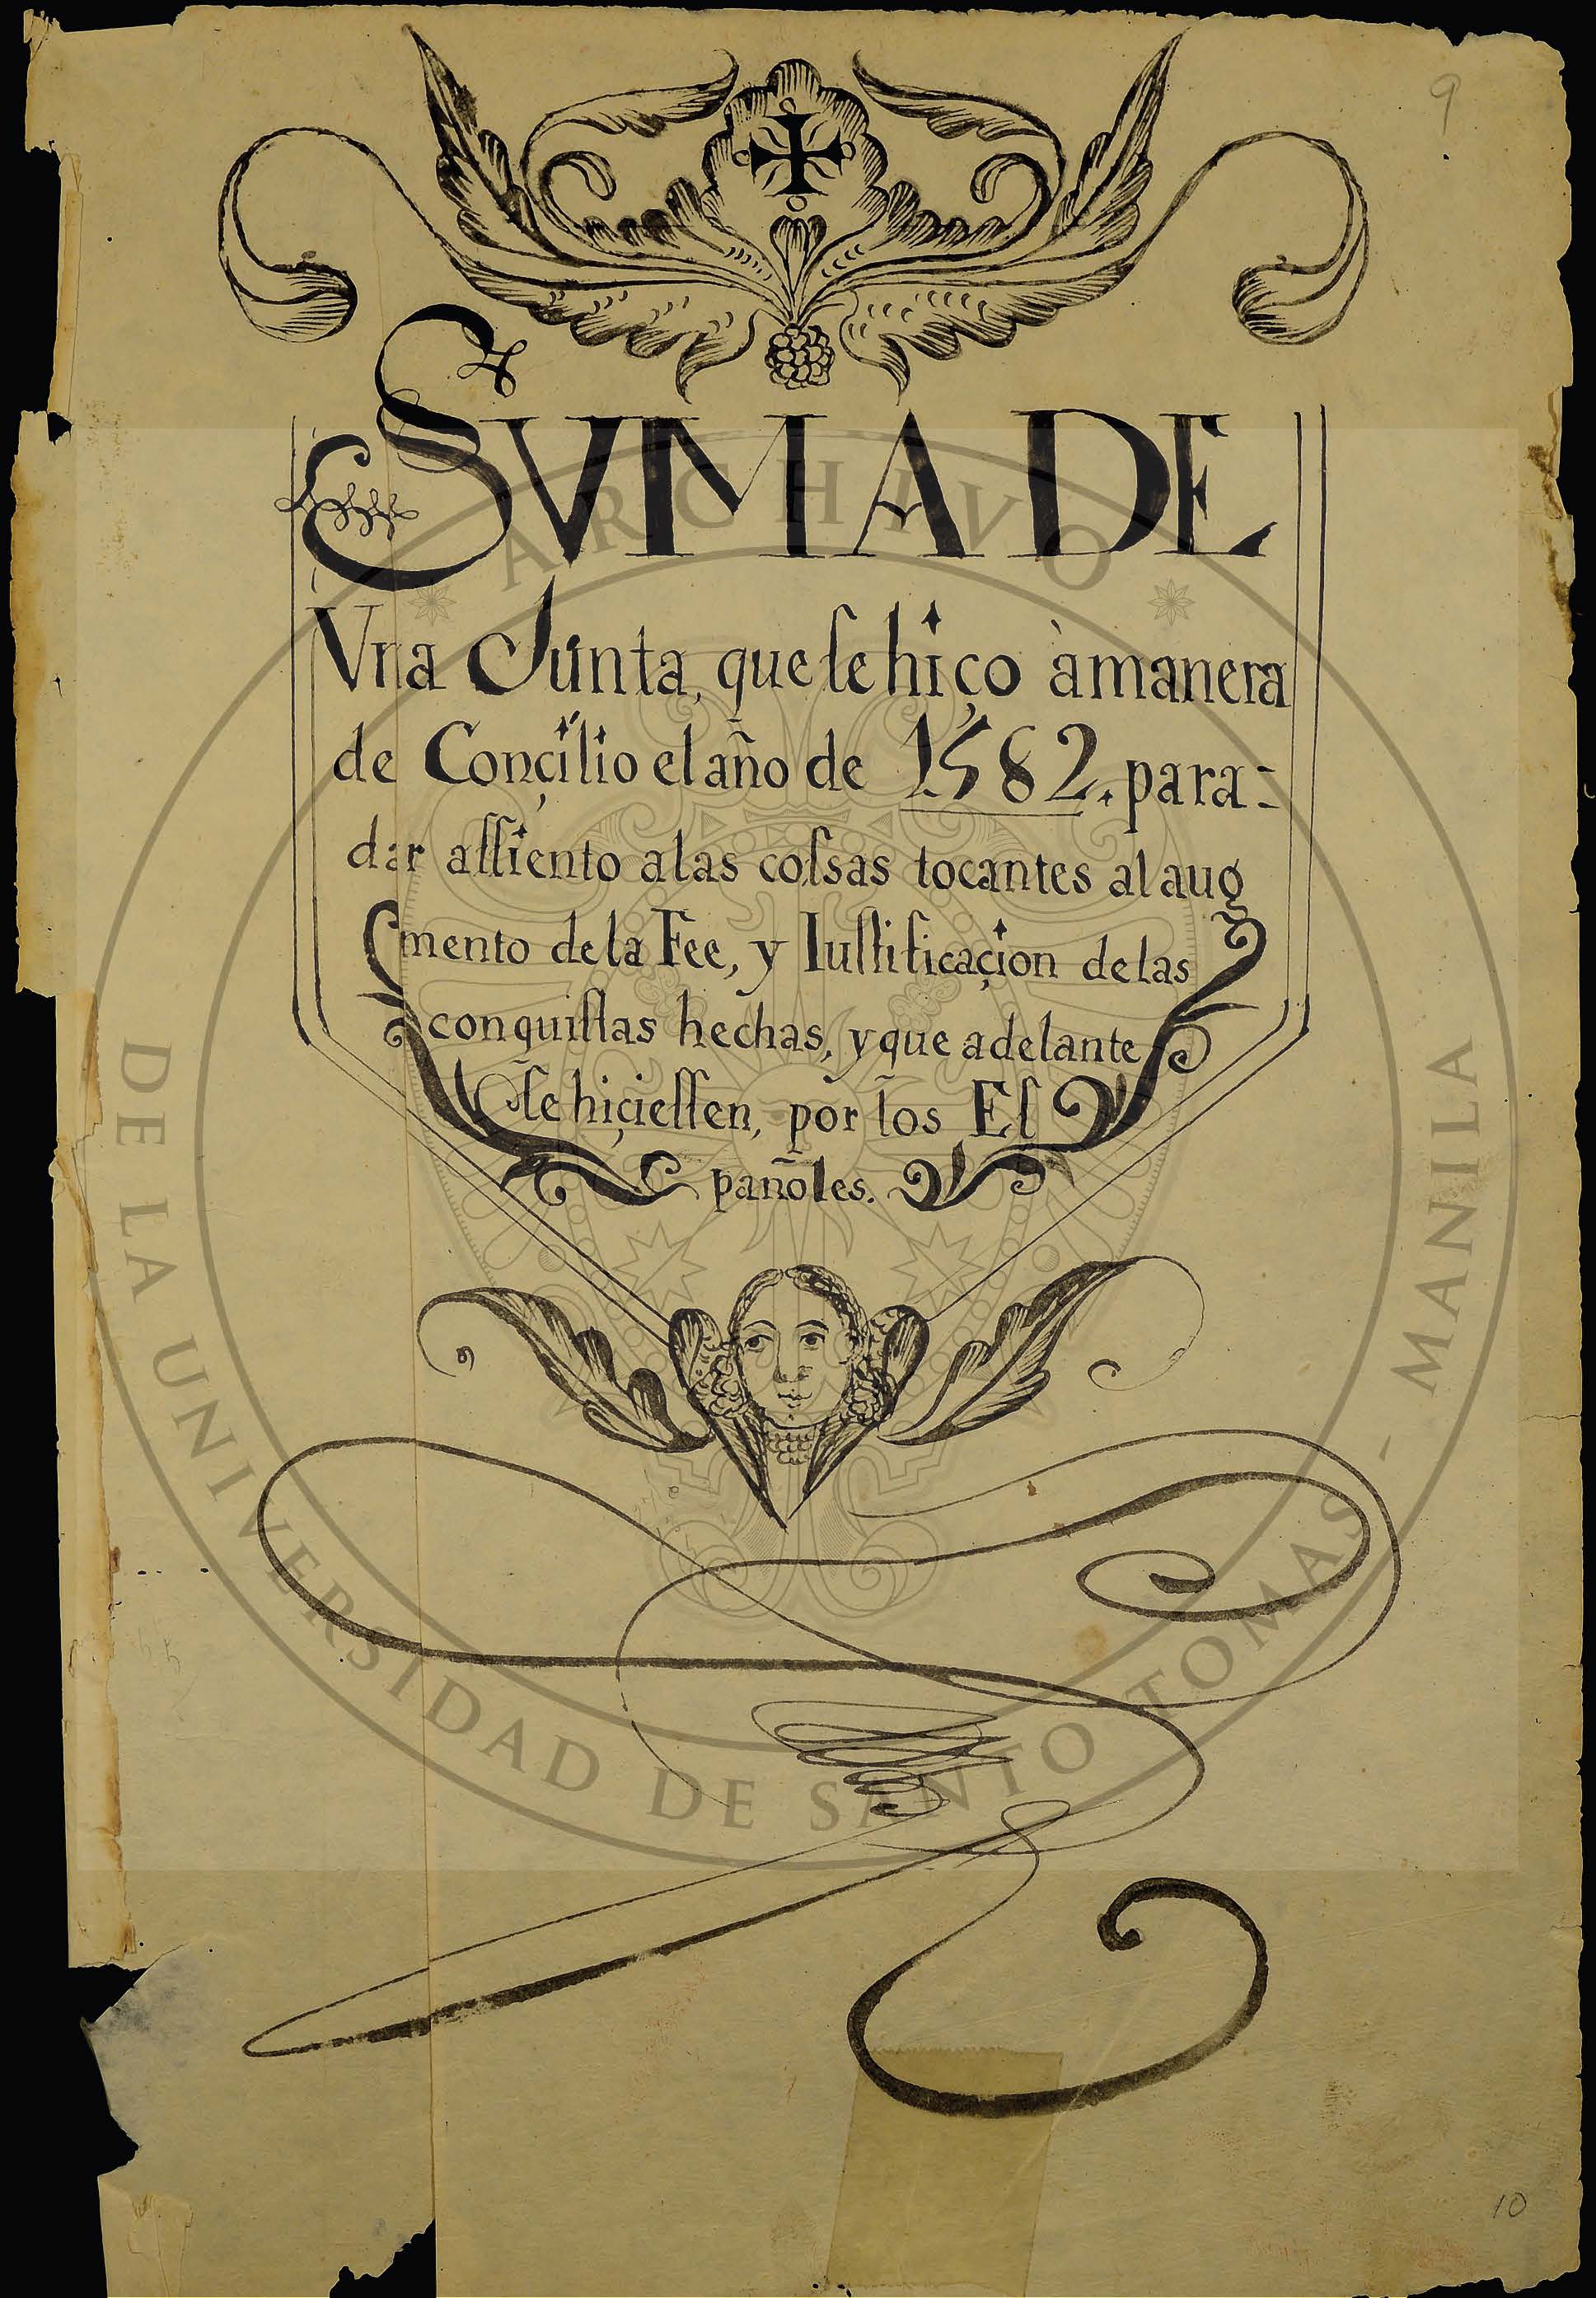 9
SVMA DE
Vna Junta, que ſe hiço à manera
de Conçilio el año de 1582. para-
dar aſſiento a las coſsas tocantes al aug
mento de la Fee, y Iuſtificaçion de las
conquiſtas hechas, y que adelante
ſe hiçieſſen, por los Eſ
pañoles.
ARCHIVO
DE LA UNIVERSIDAD DE SANTO TOMAS - MANILA
10